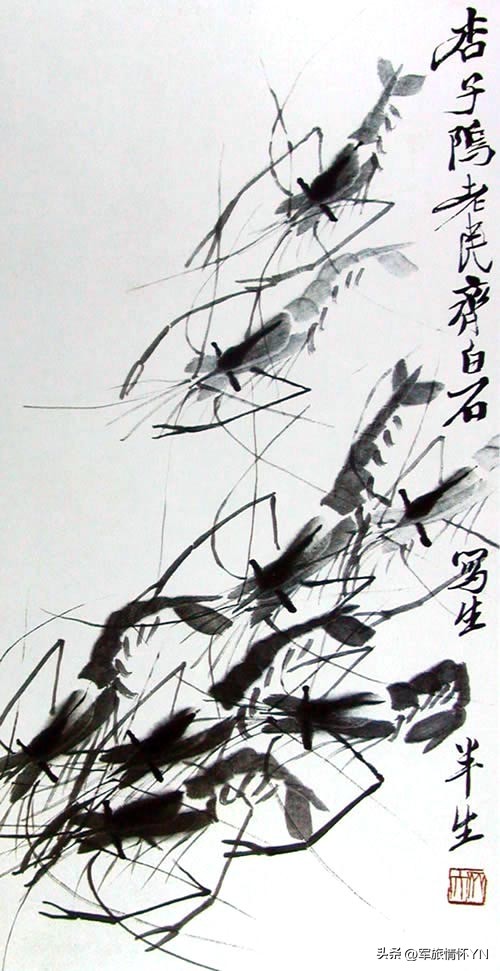 杏子隖老民齊白石
寫生
半生
头条 @军旅情怀YN